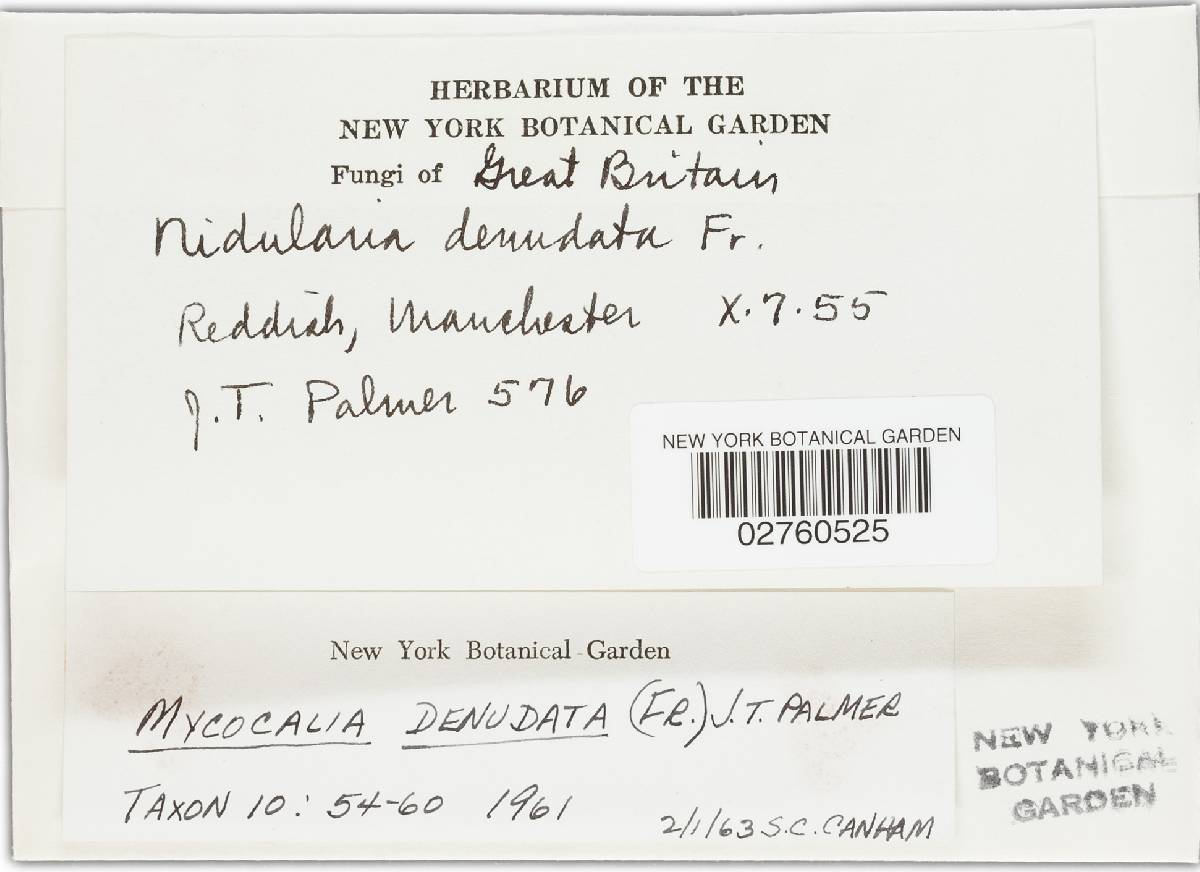 HERBARIUM OF THE
NEW YORK BOTANICAL GARDEN
Fungi of Great Britain
Nidularia denudata Fr.
Reddish, Manchester X.7.55
J.T. Palmer 576
NEW YORK BOTANICAL GARDEN
02760525
New York Botanical Garden
MYCOCALIA DENUDATA (FR.) J.T. PALMER
TAXON 10: 54-60 1961
2/1/63 S.C. CANHAM
NEW YORK
BOTANICAL
GARDEN